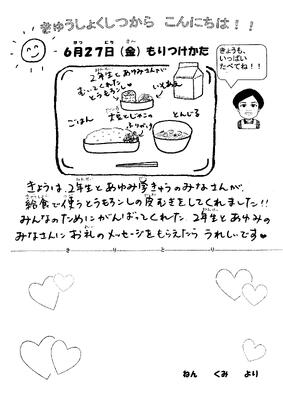 きゅうしょくしつから こんにちは！！
6月27日（金）もりつけかた
きょうも、
いっぱい
たべてね！！
2年生とあゆみさんが
むいてくれた
とうもろこし
ごはん
大豆とじゃこの
とんじる
きょうは、2年生とあゆみ学きゅうのみなさんが、
給食で使うとうもろこしの皮むきをしてくれました！！
みんなのためにがんばってくれた 2年生とあゆみの
みなさんに お礼のメッセージをもらえたら うれしいです♥
きりとり
ねん くみ より